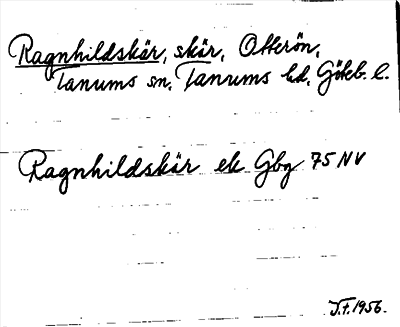 Ragnhildskär, skär, Otterön,
Tanums sn, Tanums hd, Göteb. l.
Ragnhildskär ek Gbg 75 NV
J.F. 1956.